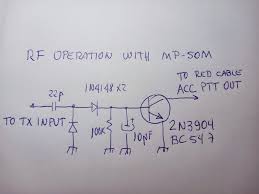 RF OPERATION WITH MP-50M
TO RED CABLE
ACC PTT OUT
1N4148 X2
22p
TO TX INPUT
100K
10µF
2N3904
BC547